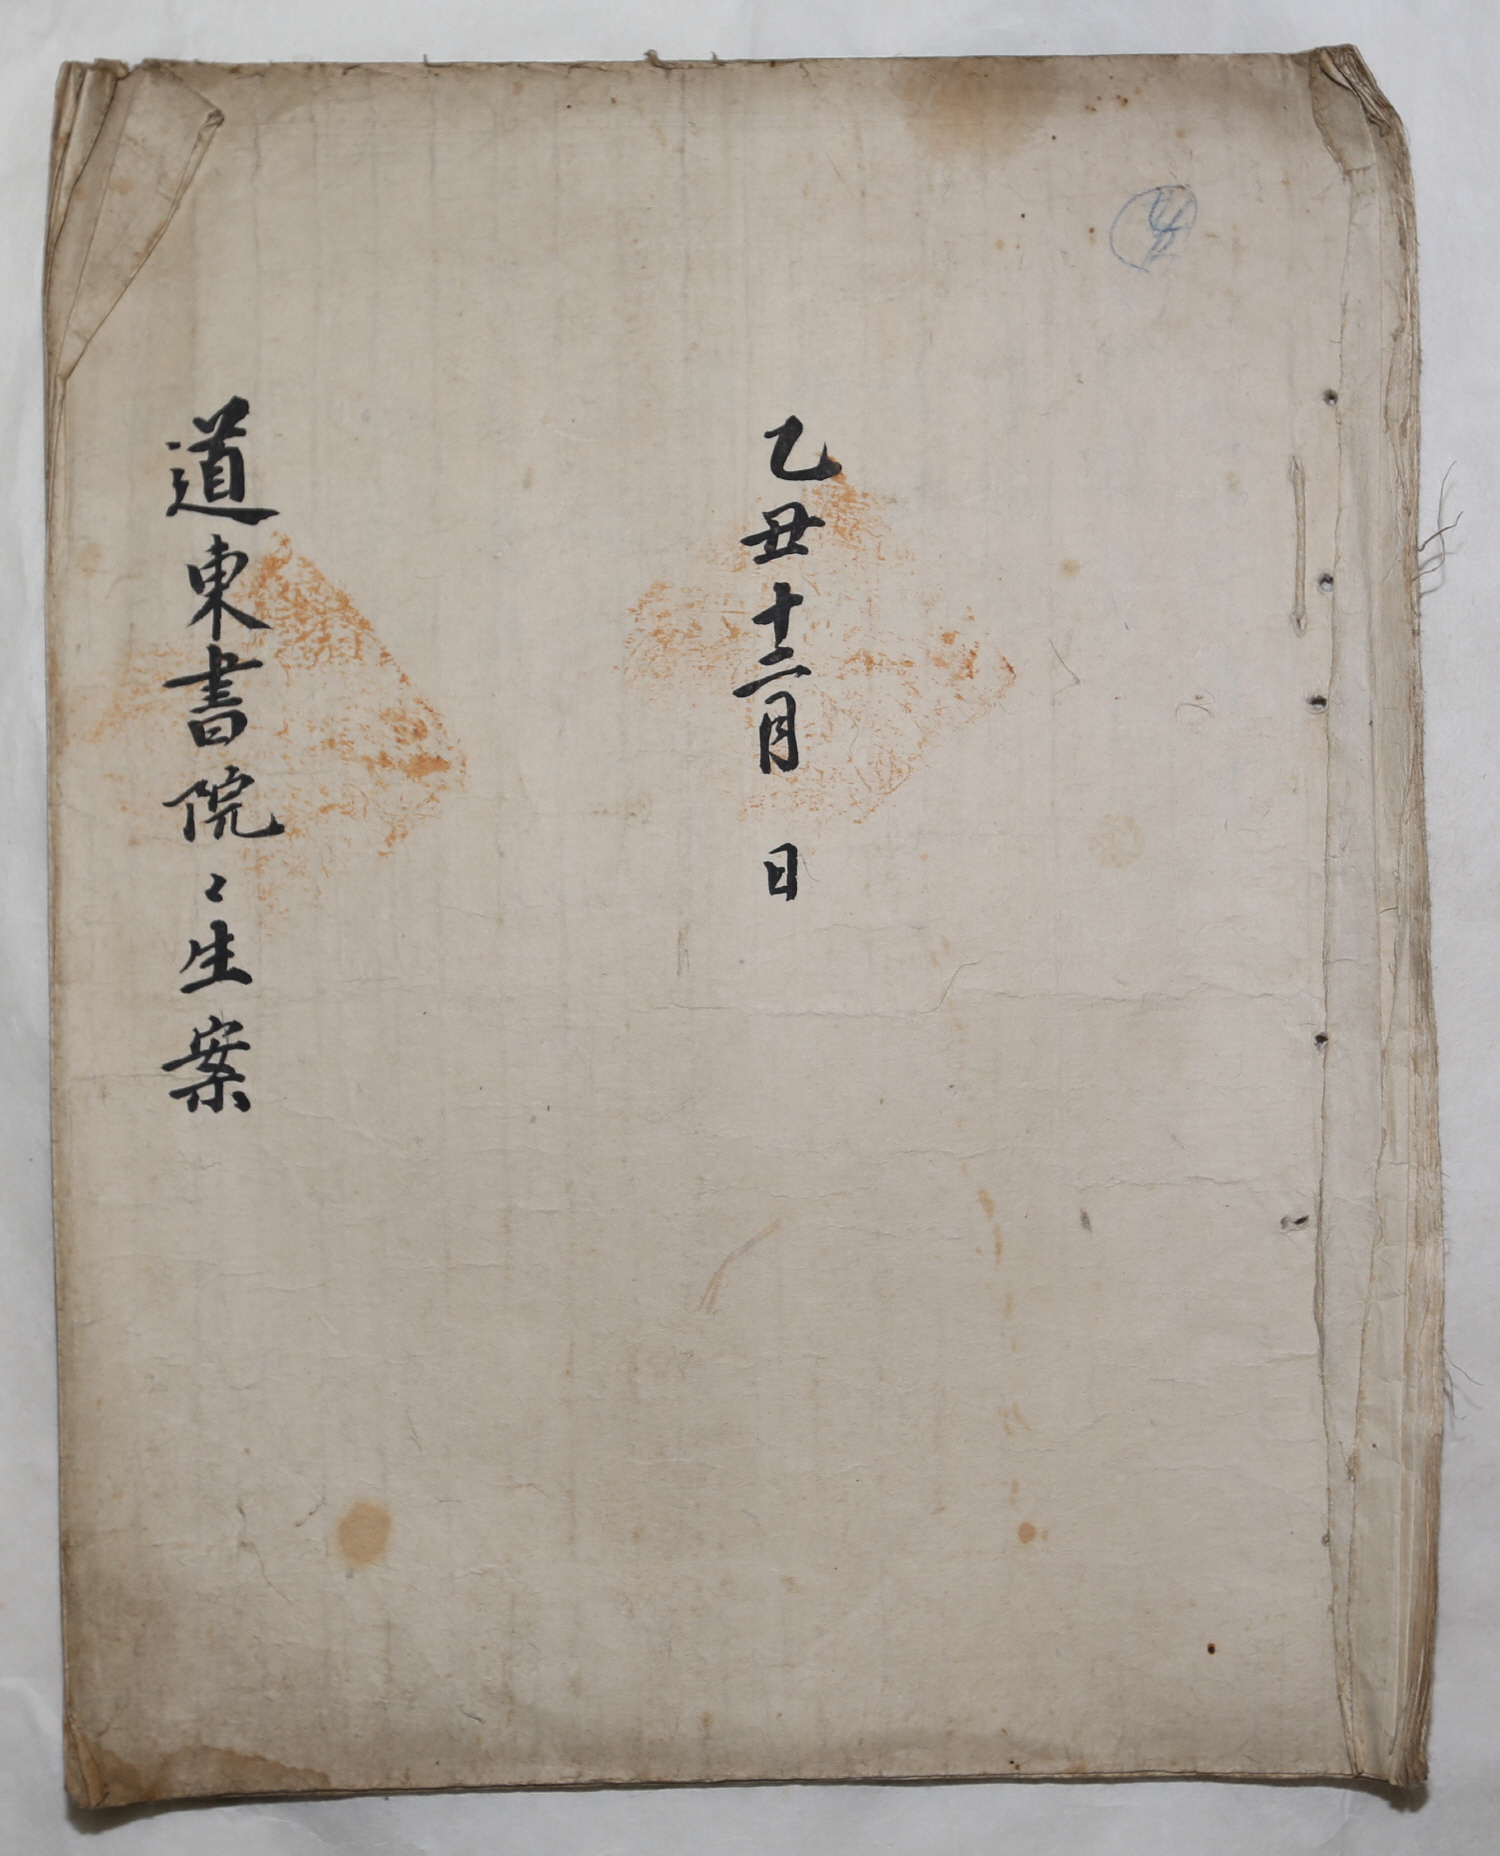 乙丑十二月 日
道東書院〻生案